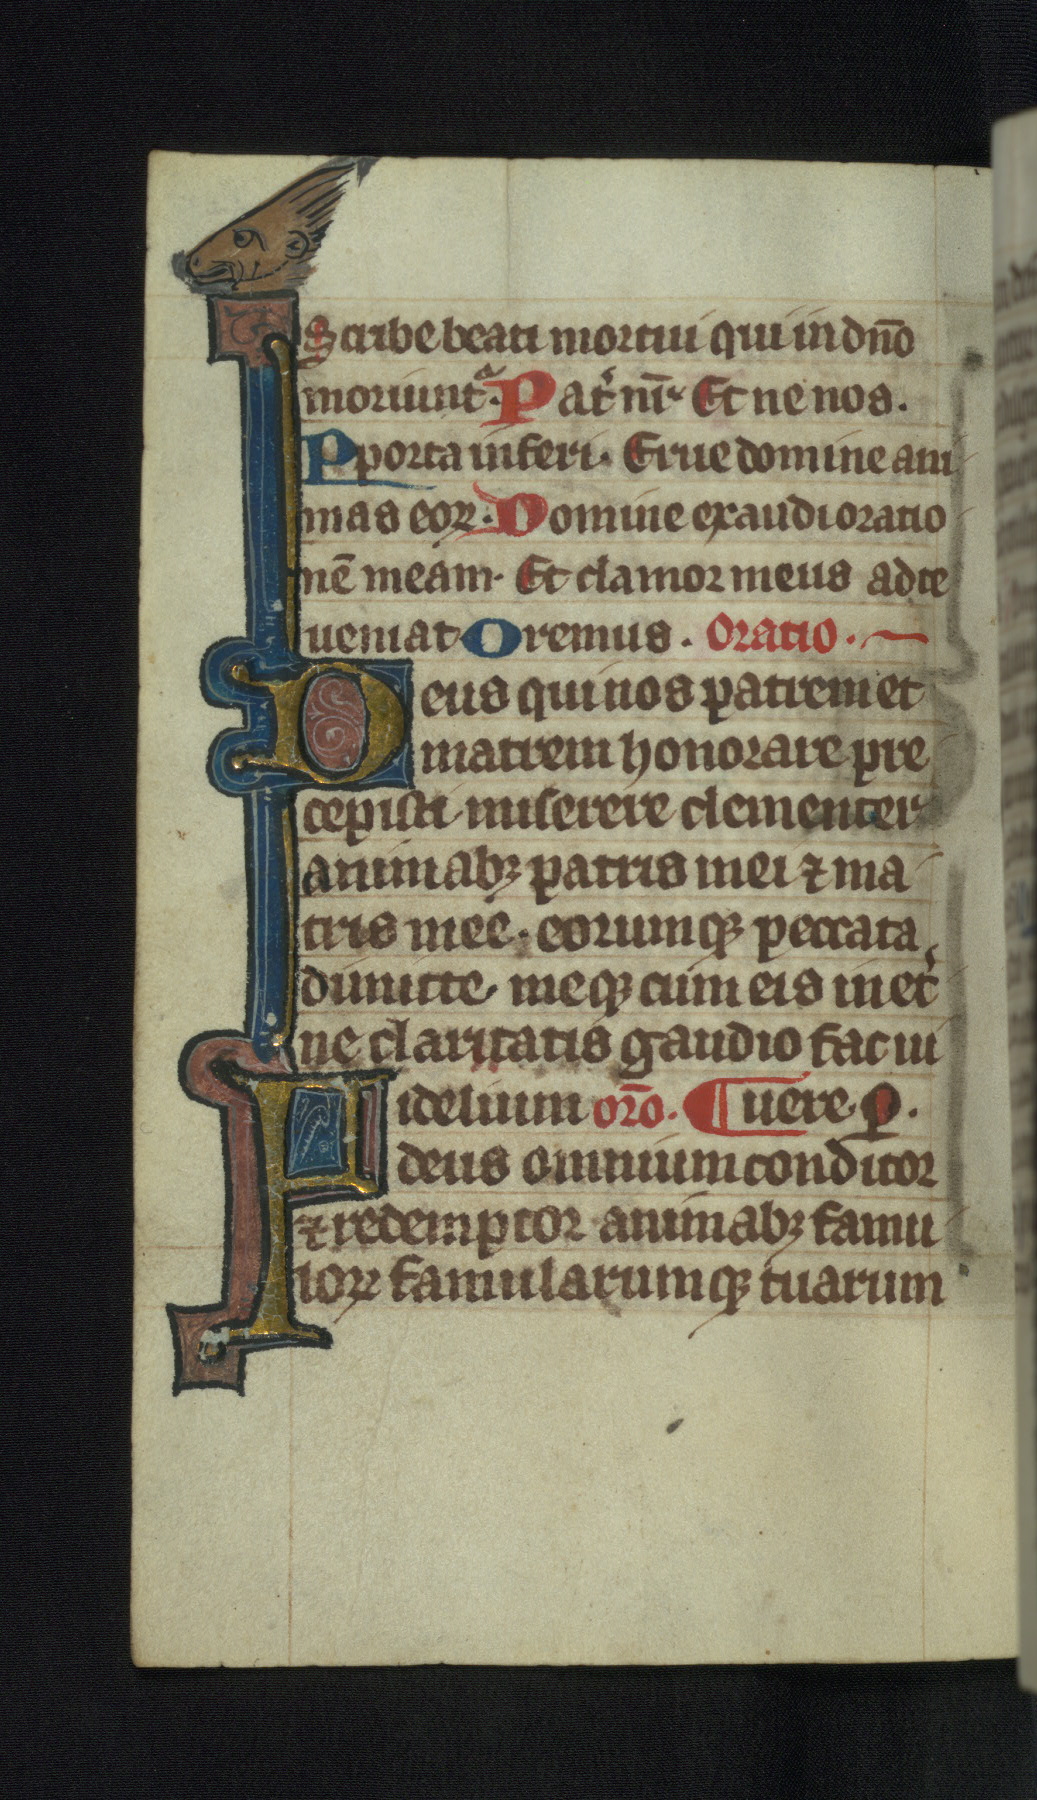 Scribe beati mortui qui in dño
moriunt᷑. Pat᷑ nr̄. Et ne nos.
P porta inferi. Erue domine ani
mas eoꝝ. Domine exaudi oratio
nē meam. Et clamor meus ad te
ueniat Oremus. Oratio.
Deus qui nos patrem et
matrem honorare pre
cepisti miserere clementer
animabꝫ patris mei ⁊ ma
tris mee. eorumqꝫ peccata
dimitte. meqꝫ cum eis in et᷑
ne claritatis gaudio fac ui
Fidelium or̄o. uere ꝑ.
deus omnium conditor
⁊ redemptor animabꝫ famu
loꝝ famularumqꝫ tuarum